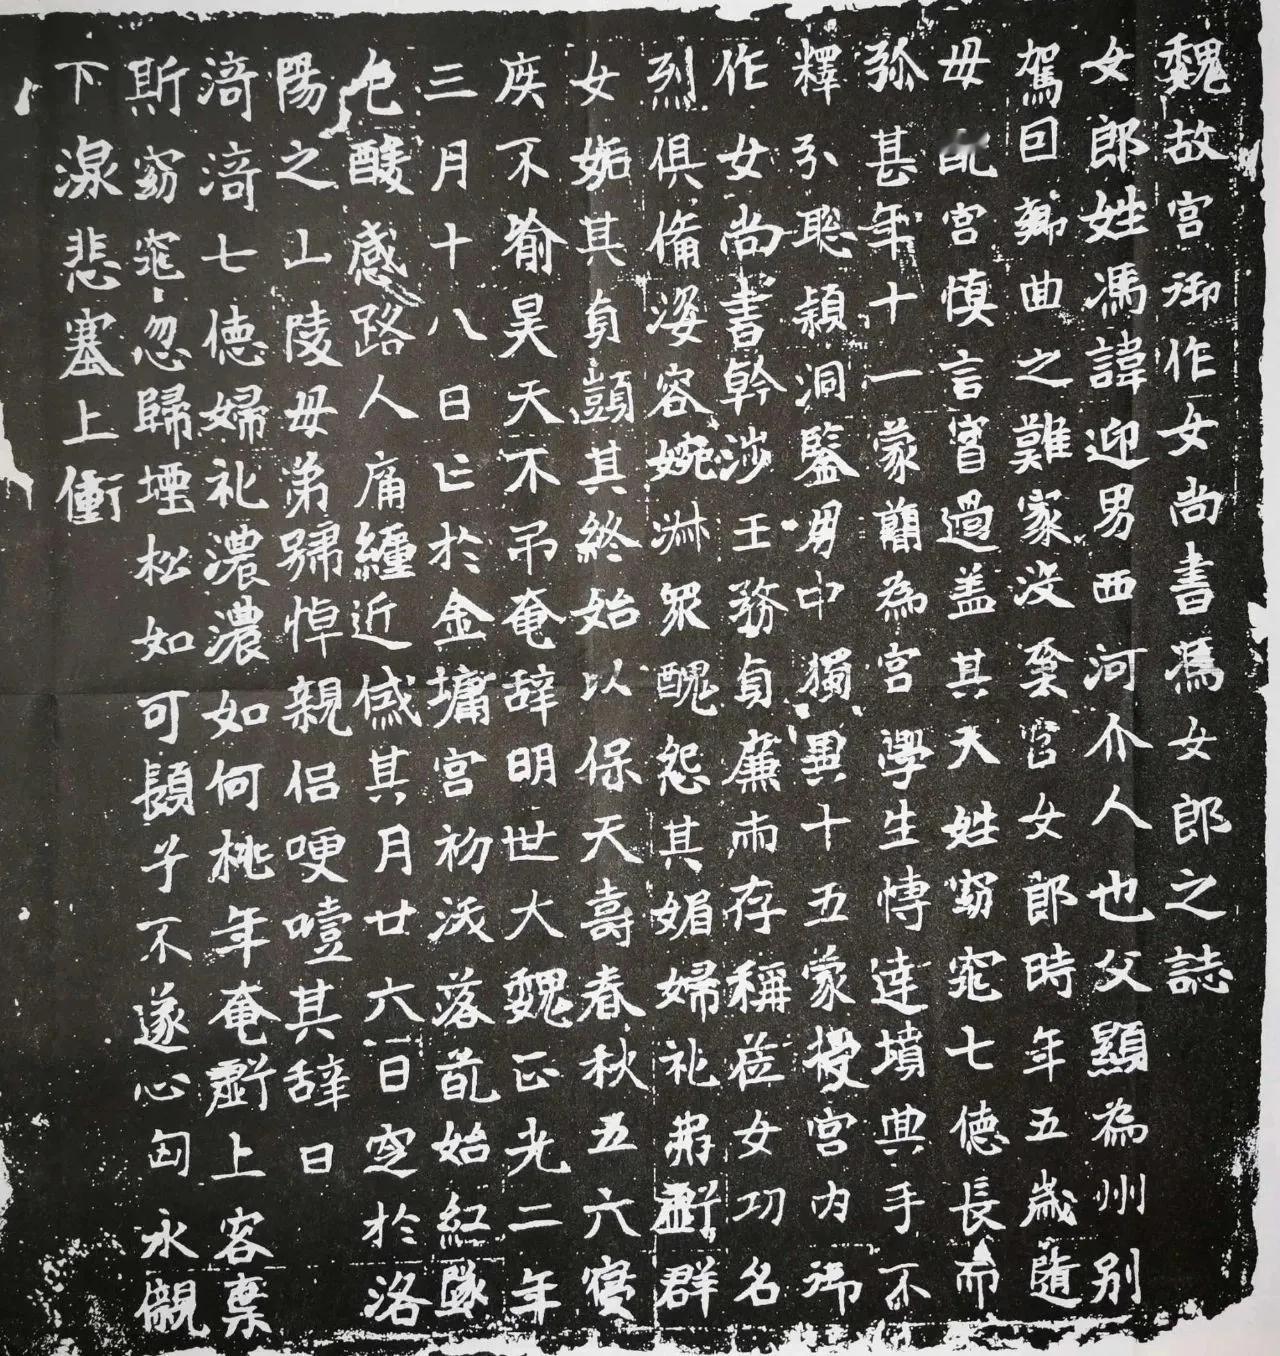 魏故宮御作女尚書馮女郎之誌
女郎姓馮諱迎男西河介人也父顯為州别
駕因鄉曲之難家没奚官女郎時年五歲隨
母配宮慎言寡過盖其天姓窈窕七德長而
弥甚年十一蒙蕳為宮學生博達墳典手不
釋卷聡穎洞鑒朋中獨異十五蒙授宮内御
作女尚書幹涉王務貞廉兩存稱莅女功名
烈俱備姿容婉淋衆醜怨其媚婦礼弗虧群
女妬其貞顗其終始以保天壽春秋五六寢
疾不喻昊天不吊奄辞明世大魏正光二年
三月十八日亡於金墉宮初沃落葩始紅墜
色酸感路人痛纏近慼其月廿六日窆於洛
陽之山陵母弟號悼親侣哽噎其辞曰
漪漪七德婦礼濃濃如何桃年奄虧上容棄
斯窈窕忽歸堙松如可顋子不遂心匈永儭
下湶悲塞上衝